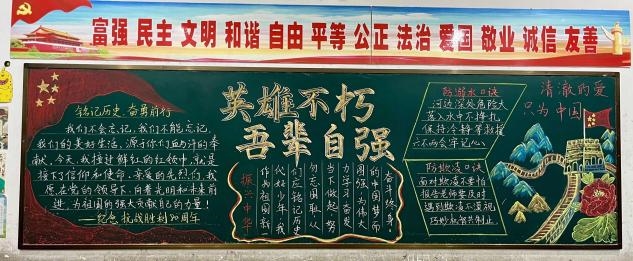 富强 民主 文明 和谐 自由 平等 公正 法治 爱国 敬业 诚信 友善
铭记历史，奋勇前行
我们不会忘记，我们不能忘记，
我们的美好生活，源于你们血汗的奉
献，今天，我接过鲜红的红领巾，就是
接下了信仰和使命，亲爱的先烈们，我
愿在党的领导下，向着光明和未来前
进，为祖国的强大贡献自己的力量！
——纪念抗战胜利80周年
英雄不朽
吾辈自强
奋斗终身！
的中国梦而
国强，为伟大
力学习，奋发
当下做起，努
勿忘国耻，从
们应铭记历史
代好少年，我
作为祖国新一
振兴中华
防溺水口诀
河边深处危险大
落入水中不挣扎
保持冷静等救援
六不两会牢记心
防欺凌口诀
面对欺凌不要怕
报告老师要及时
遇到欺凌不漠视
巧妙机智共制止
清澈的爱
只为中国